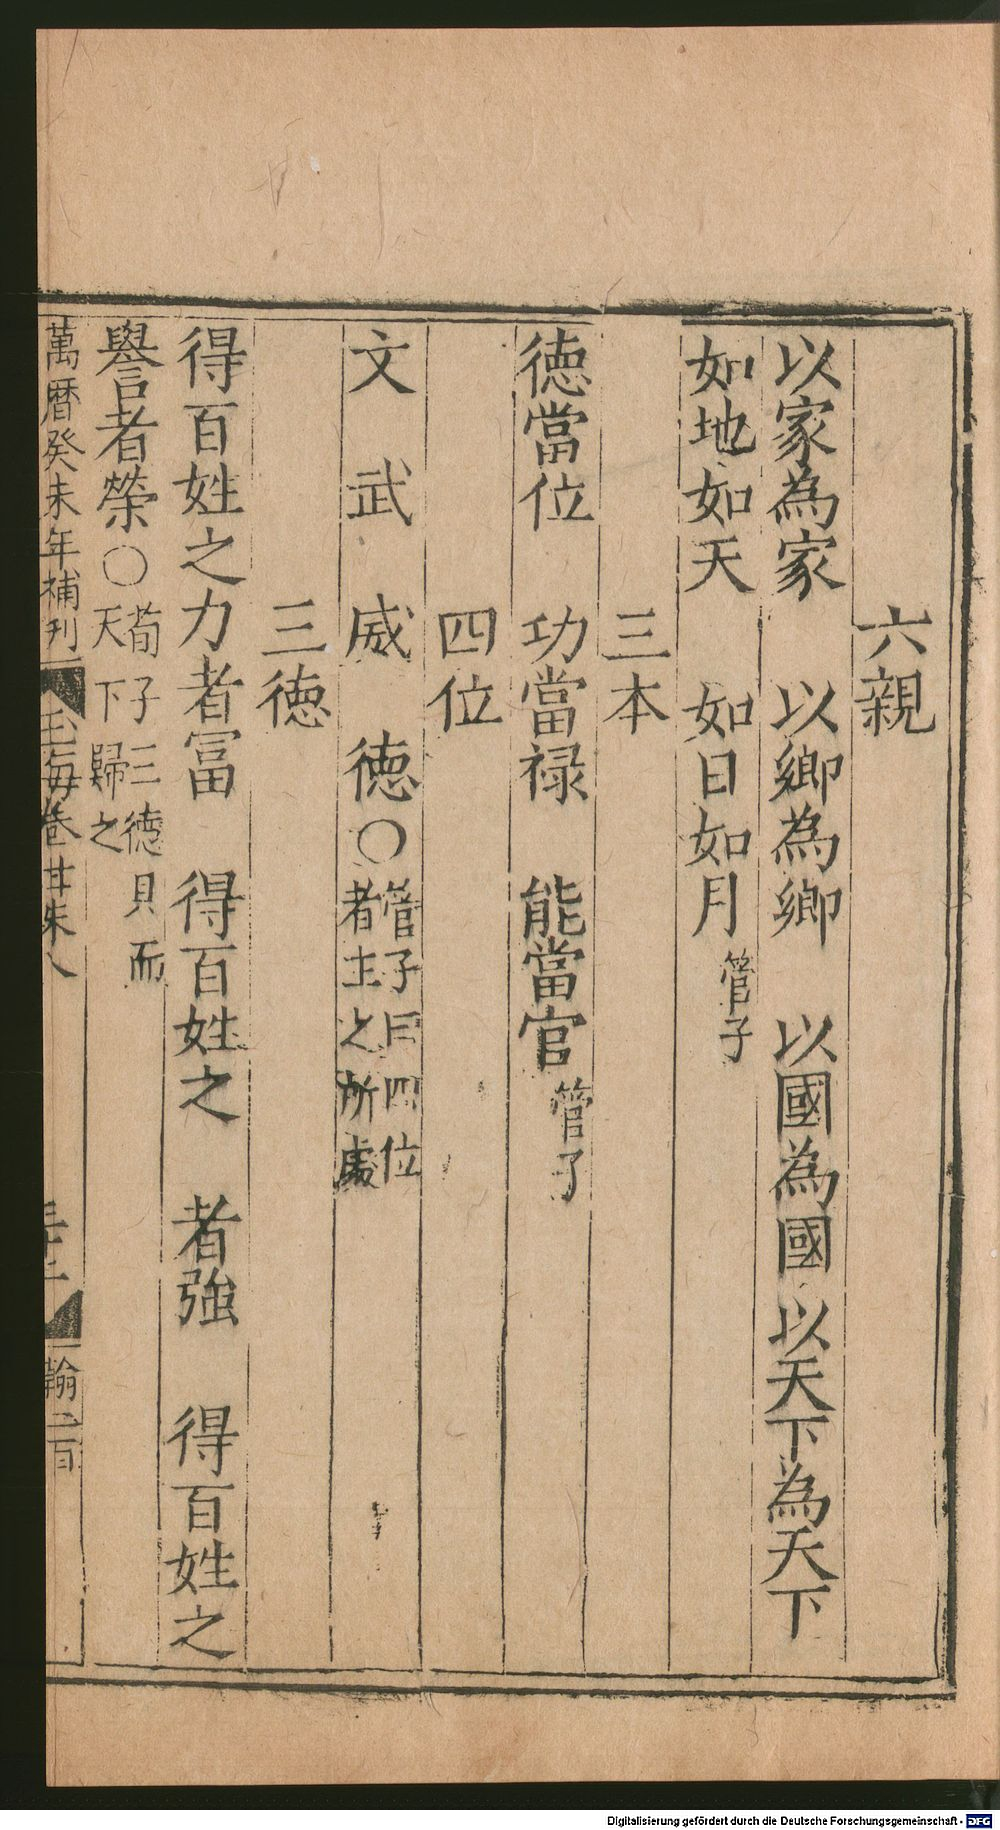 六親
以家為家　以鄉為鄉　以國為國　以天下為天下
如地如天　如日如月管子
三本
德當位　功當禄　能當官管子
四位
文　武　威　德○管子曰四位
者主之所處
三德
得百姓之力者冨　得百姓之　者強　得百姓之
譽者榮○荀子三德具而
天下歸之
萬曆癸未年補刊　玉海卷　翰二百
Digitalisierung gefördert durch die Deutsche Forschungsgemeinschaft - DFG